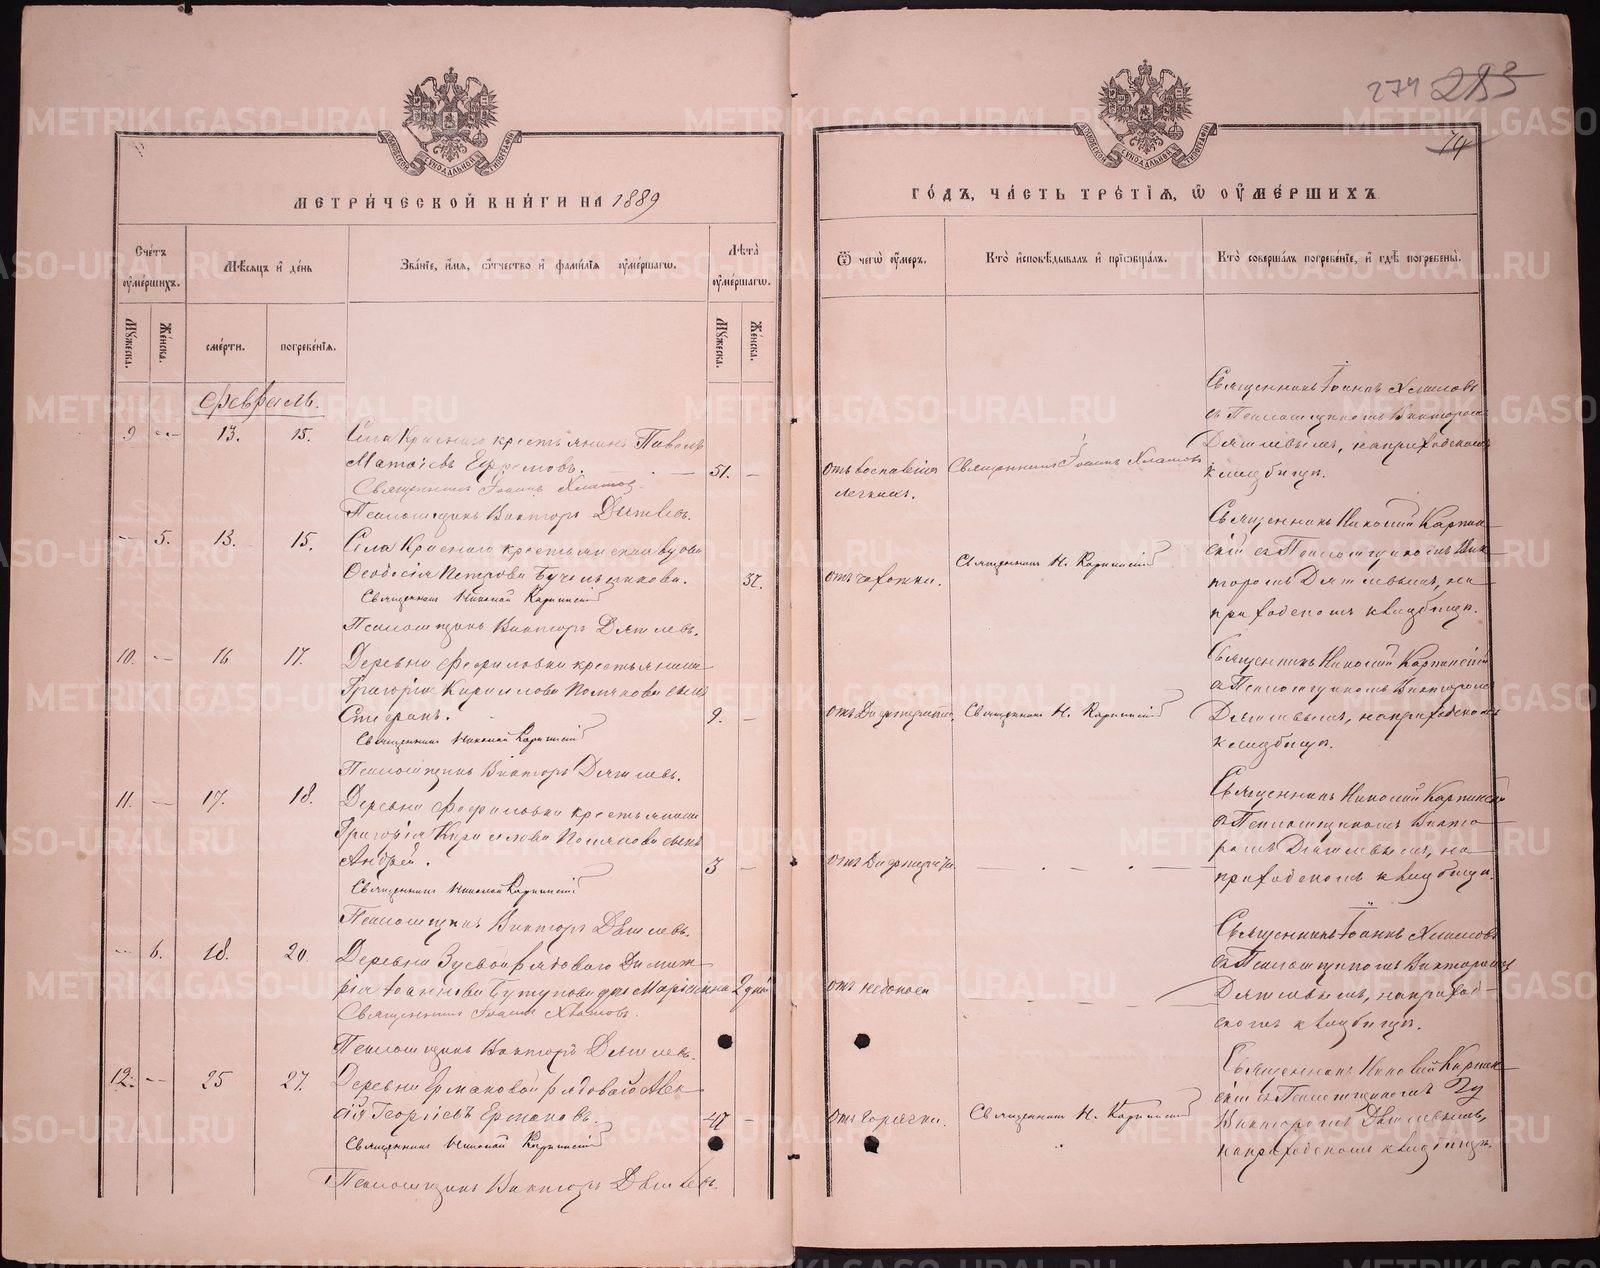 274 283
74
МЕТРИ́ЧЕСКОЙ КНИ́ГИ НА 1889
ГО́ДЪ, ЧА́СТЬ ТРЕ́ТІѦ, Ѡ ОУ҆МЕ́РШИХЪ
Сче́тъ оу҆ме́ршихъ.
Мѣ́сяцъ и҆ де́нь
Зва́ніе, и҆́мя, ѻ҆́тчество и҆ фами́лія оу҆ме́ршагѡ.
Лѣ́та оу҆ме́ршагѡ.
Му́жеска.
Же́нска.
сме́рти.
погребе́нія.
Му́жеска.
Же́нска.
Ѿ чегѡ̀ оу҆́меръ.
Кто̀ и҆сповѣ́дывалъ и҆ прїѡбща́лъ.
Кто̀ соверша́лъ погребе́ніе, и҆ гдѣ̀ погребены̀.
Февраль.
9 13. 15. Села Краснаго крестьянинъ Павелъ
Матѳіевъ Ефремовъ. 51.
Священникъ Іоаннъ Хлатовъ
Псаломщикъ Викторъ Дягилевъ.
отъ воспаленія
легкихъ.
Священникъ Іоаннъ Хлатовъ
Священникъ Іоаннъ Хлатовъ
съ Псаломщикомъ Викторомъ
Дягилевымъ, на приходскомъ
кладбищѣ.
5. 13. 15. Села Краснаго крестьянская вдова
Ѳеодосія Петрова 37.
Священникъ Николай Карпинскій
Псаломщикъ Викторъ Дягилевъ.
отъ чахотки.
Священникъ Н. Карпинскій
Священникъ Николай Карпин-
скій съ Псаломщикомъ Вик-
торомъ Дягилевымъ, на
приходскомъ кладбищѣ.
10. 16 17. Деревни крестьянина
Григорія Кириллова Полякова сынъ
Стефанъ. 9.
Священникъ Николай Карпинскій
Псаломщикъ Викторъ Дягилевъ.
отъ Дифтерита.
Священникъ Н. Карпинскій
Священникъ Николай Карпинскій
съ Псаломщикомъ Викторомъ
Дягилевымъ, на приходскомъ
кладбищѣ.
11. 17. 18. Деревни крестьянина
Григорія Кириллова Полякова сынъ
Андрей. 3
Священникъ Николай Карпинскій
Псаломщикъ Викторъ Дягилевъ.
отъ Дифтерита.
Священникъ Николай Карпинскій
съ Псаломщикомъ Викто-
ромъ Дягилевымъ, на
приходскомъ кладбищѣ.
6. 18. 20. Деревни Зуевой рядоваго Димит-
рія Іоаннова дочь Маріанна 2 дней
Священникъ Іоаннъ Хлатовъ.
Псаломщикъ Викторъ Дягилевъ.
отъ
Священникъ Іоаннъ Хлатовъ
съ Псаломщикомъ Викторомъ
Дягилевымъ, на приход-
скомъ кладбищѣ.
12. 25 27. Деревни Ермаковой рядовой Алек-
сій Георгіевъ Ермаковъ. 47
Священникъ Николай Карпинскій
Псаломщикъ Викторъ Дягилевъ.
отъ горячки.
Священникъ Н. Карпинскій
Священникъ Николай Карпин-
скій съ Псаломщикомъ
Викторомъ Дягилевымъ,
на приходскомъ кладбищѣ.
METRIKI.GASO-URAL.RU